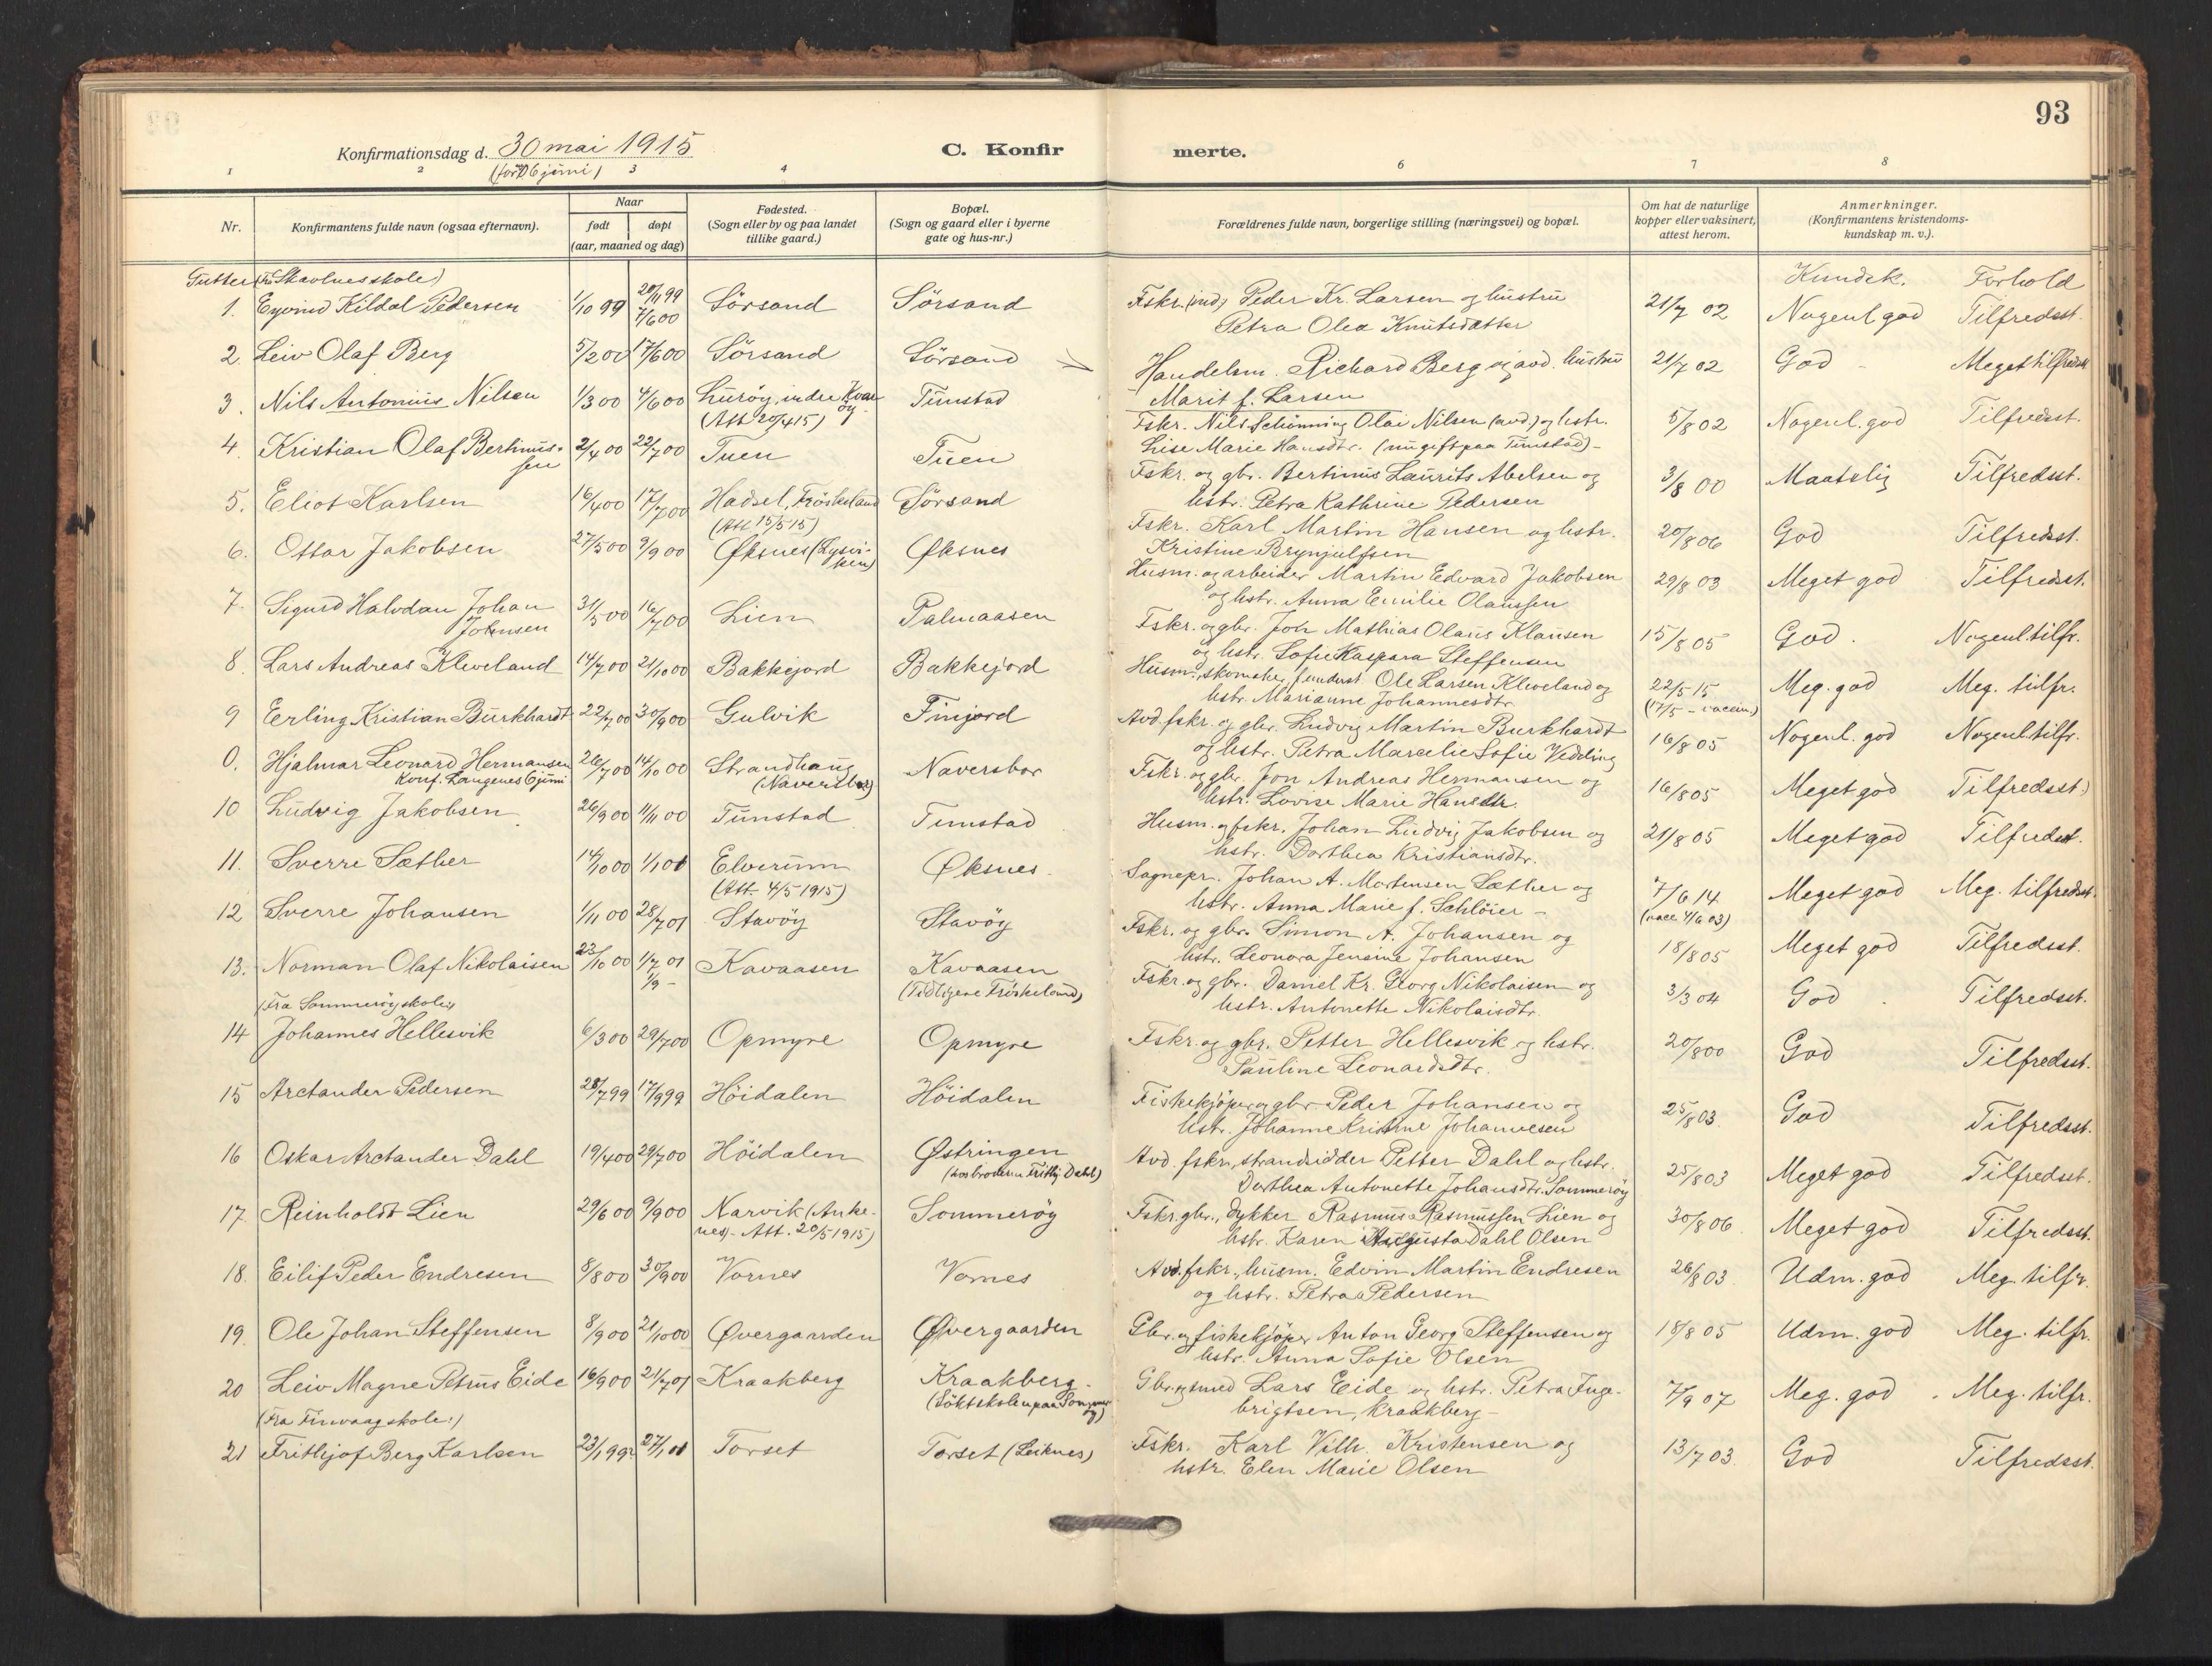 93
Konfirmationsdag d. 30 mai 1915
C. Konfirmerte.
1 2 3 4 6 7 8
Nr.
Konfirmantens fulde navn (ogsaa efternavn).
Naar
født døpt
(aar, maaned og dag)
Fødested.
(Sogn eller by og paa landet
tillike gaard.)
Bopæl.
(Sogn og gaard eller i byerne
gate og hus-nr.)
Forældrenes fulde navn, borgerlige stilling (næringsvei) og bopæl.
Om hat de naturlige
kopper eller vaksinert,
attest herom.
Anmerkninger.
(Konfirmantens kristendoms-
kundskap m. v.).
Gutter (Fra Skavlnes skole) Kundsk. Forhold
1. Eyvind Kildal Pedersen 1/10 99 20/11 99 7/6 00 Sörsand Sörsand Fskr. (ind) Peder Kr. Larsen og hustru 21/7 02 Nogenl. god Tilfredsst.
Petra Olea Knutsdatter
2. Leiv Olaf Berg 5/2 00 17/6 00 Sörsand Sörsand Handelsm. Richard Berg og avd. hustru 21/7 02 God - Meget tilfredsst.
Marit f. Larsen
3. Nils Antonius Nilsen 1/3 00 4/6 00 Luröy, indre Kvaröy Tunstad Fskr. Nils Schönning Olai Nilsen (avd.) og hstr. 5/8 02 Nogenl. god Tilfredsst.
(Att 20/4 15) Lise Marie Hansdtr. (nu gift paa Tunstad) -
4. Kristian Olaf Bertinus- 2/4 00 22/7 00 Tuen Tuen Fskr. og gbr. Bertinus Laurits Abelsen og 3/8 00 Maatelig Tilfredsst.
sen hstr. Petra Kathrine Pedersen
5. Eliot Karlsen 16/4 00 17/7 00 Hadsel, Fröskeland Sörsand Fskr. Karl Martin Hansen og hstr. 20/8 06 God Tilfredsst.
(Att 15/5 15) Kristine Brynjulfsen
6. Ottar Jakobsen 27/5 00 9/9 00 Øksnes (Lysvi- Øksnes Husm. og arbeider Martin Edvard Jakobsen 29/8 03 Meget god Tilfredsst.
ken) og hstr. Anna Emilie Olaussen
7. Sigurd Halvdan Johan 31/5 00 16/7 00 Lien Palmaasen Fskr. og gbr. Joh Mathias Olaus Klausen 15/8 05 God. Nogenl. tilfr.
Johnsen og hstr. Sofie Kaspara Steffensen
8. Lars Andreas Kleveland 14/7 00 21/10 00 Bakkejord Bakkejord Husm., skomaker, f. underst. Ole Larsen Kleveland og 22/5 15 Meg. god Meg. tilfr.
hstr. Marianne Johannesdtr. (17/5 - vaccin.)
9 Erling Kristian Burkhardt 22/7 00 30/9 00 Gulvik Finjord Avd. fskr. og gbr. Ludvig Martin Burkhardt 16/8 05 Nogenl. god Nogenl. tilfr.
og hstr. Petra Marcelie Sofie Vedding
0. Hjalmar Leonard Hermansen 26/7 00 14/10 00 Strandhaug Naversbor Fskr. og gbr. Jon Andreas Hermansen og 16/8 05 Meget god Tilfredsst.)
Konf. Langenes 6 juni (Naversbor) hstr. Lovise Marie Hansdtr.
10 Ludvig Jakobsen 26/9 00 11/11 00 Tunstad Tunstad Husm. og fskr. Johan Ludvig Jakobsen og 21/8 05 Meget god Tilfredsst.
hstr. Dorthea Kristiansdtr.
11. Sverre Sæther 14/10 00 1/1 01 Elverum Øksnes. Sognepr. Johan A. Mortensen Sæther og 7/6 14 Meget god Meg. tilfredsst.
(Att. 4/5 1915) hstr. Anna Marie f. Schlöier - (vacc 4/6 03)
12 Sverre Johansen 1/11 00 28/7 01 Stavöy Stavöy Fskr. og gbr. Simon A. Johansen og 18/8 05 Meget god Tilfredsst.
hstr. Leonora Jensine Johansen
13. Norman Olaf Nikolaisen 23/10 00 1/7 01 Kavaasen Kavaasen Fskr. og gbr. Daniel Kr. Georg Nikolaisen og 3/3 04 God Tilfredsst.
1/9 - (Tidligere Fröskeland) hstr. Antonette Nikolaisdtr.
(Fra Sommeröy skole)
14 Johannes Hellesvik 6/3 00 29/7 00 Opmyre Opmyre Fskr. og gbr. Petter Hellesvik og hstr. 20/8 00 God Tilfredsst.
Pauline Leonardsdtr.
15 Arctander Pedersen 28/7 99 17/9 99 Höidalen Höidalen Fiskekjöper og gbr. Peder Johansen og 25/8 03. God Tilfredsst.
hstr. Johanne Kristine Johannesen
16 Oskar Arctander Dahl 19/4 00 29/7 00 Höidalen Østringen Avd. fskr., strandsidder Petter Dahl og hstr. 25/8 03 Meget god Tilfredsst.
(hos broderen Frithj. Dahl) Dorthea Antonette Johansdtr. Sommeröy
17. Reinholdt Lien 29/6 00 9/9 00 Narvik (Anke- Sommeröy Fskr. gbr., dykker Rasmus Rasmussen Lien og 30/8 06. Meget god Tilfredsst.
nes) - Att. 20/5 1915) hstr. Karen Augusta Dahl Olsen
18. Eilif Peder Endresen 8/8 00 30/9 00 Vornes Vornes Avd. fskr., husm. Edvin Martin Endresen 26/8 03. Udm. god Meg. tilfr.
og hstr. Petra Pedersen
19. Ole Johan Steffensen 8/9 00 21/10 00 Øvergaarden Øvergaarden Gbr. og fiskekjöper Anton Georg Steffensen og 18/8 05 Udm. god Meg. tilfr.
hstr. Anna Sofie Olsen
20 Leiv Magne Petrus Eide 16/9 00 21/7 01 Kraakberg Kraakberg. Gbr. og smed Lars Eide og hstr. Petra Inge- 7/9 07 Meg. god Meg. tilfr.
(Sökt skolen paa Sommeröy) brigtsen, Kraakberg -
(Fra Finvaag skole.)
21 Frithjof Berg Karlsen 23/1 99 27/1 01 Torset Torset (Leiknes) Fskr. Karl Vilh. Kristensen og 13/7 03. God Tilfredsst.
hstr. Elen Marie Olsen